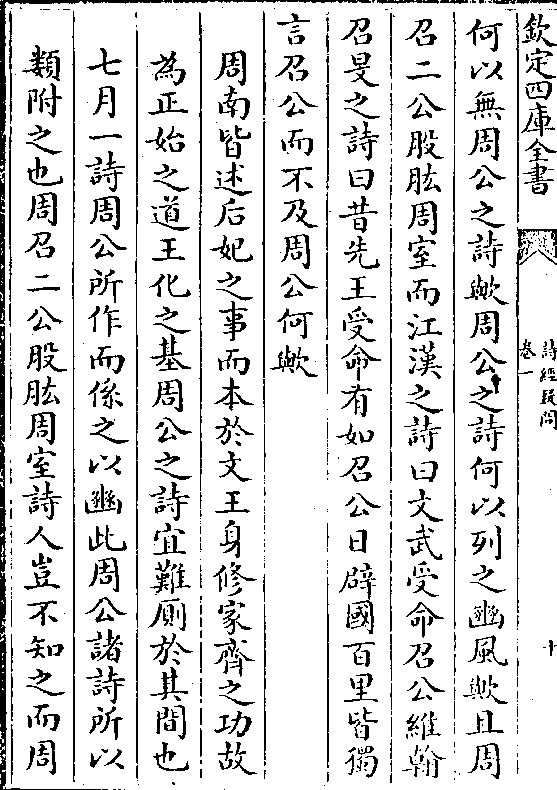 欽定四庫全書
詩經疑問
卷一
十
何以無周公之詩歟周公之詩何以列之豳風歟且周
召二公股肱周室而江漢之詩曰文武受命召公維翰
召旻之詩曰昔先王受命有如召公日辟國百里皆獨
言召公而不及周公何歟
周南皆述后妃之事而本於文王身修家齊之功故
為正始之道王化之基周公之詩宜難厠於其間也
七月一詩周公所作而係之以豳此周公諸詩所以
類附之也周召二公股肱周室詩人豈不知之而周